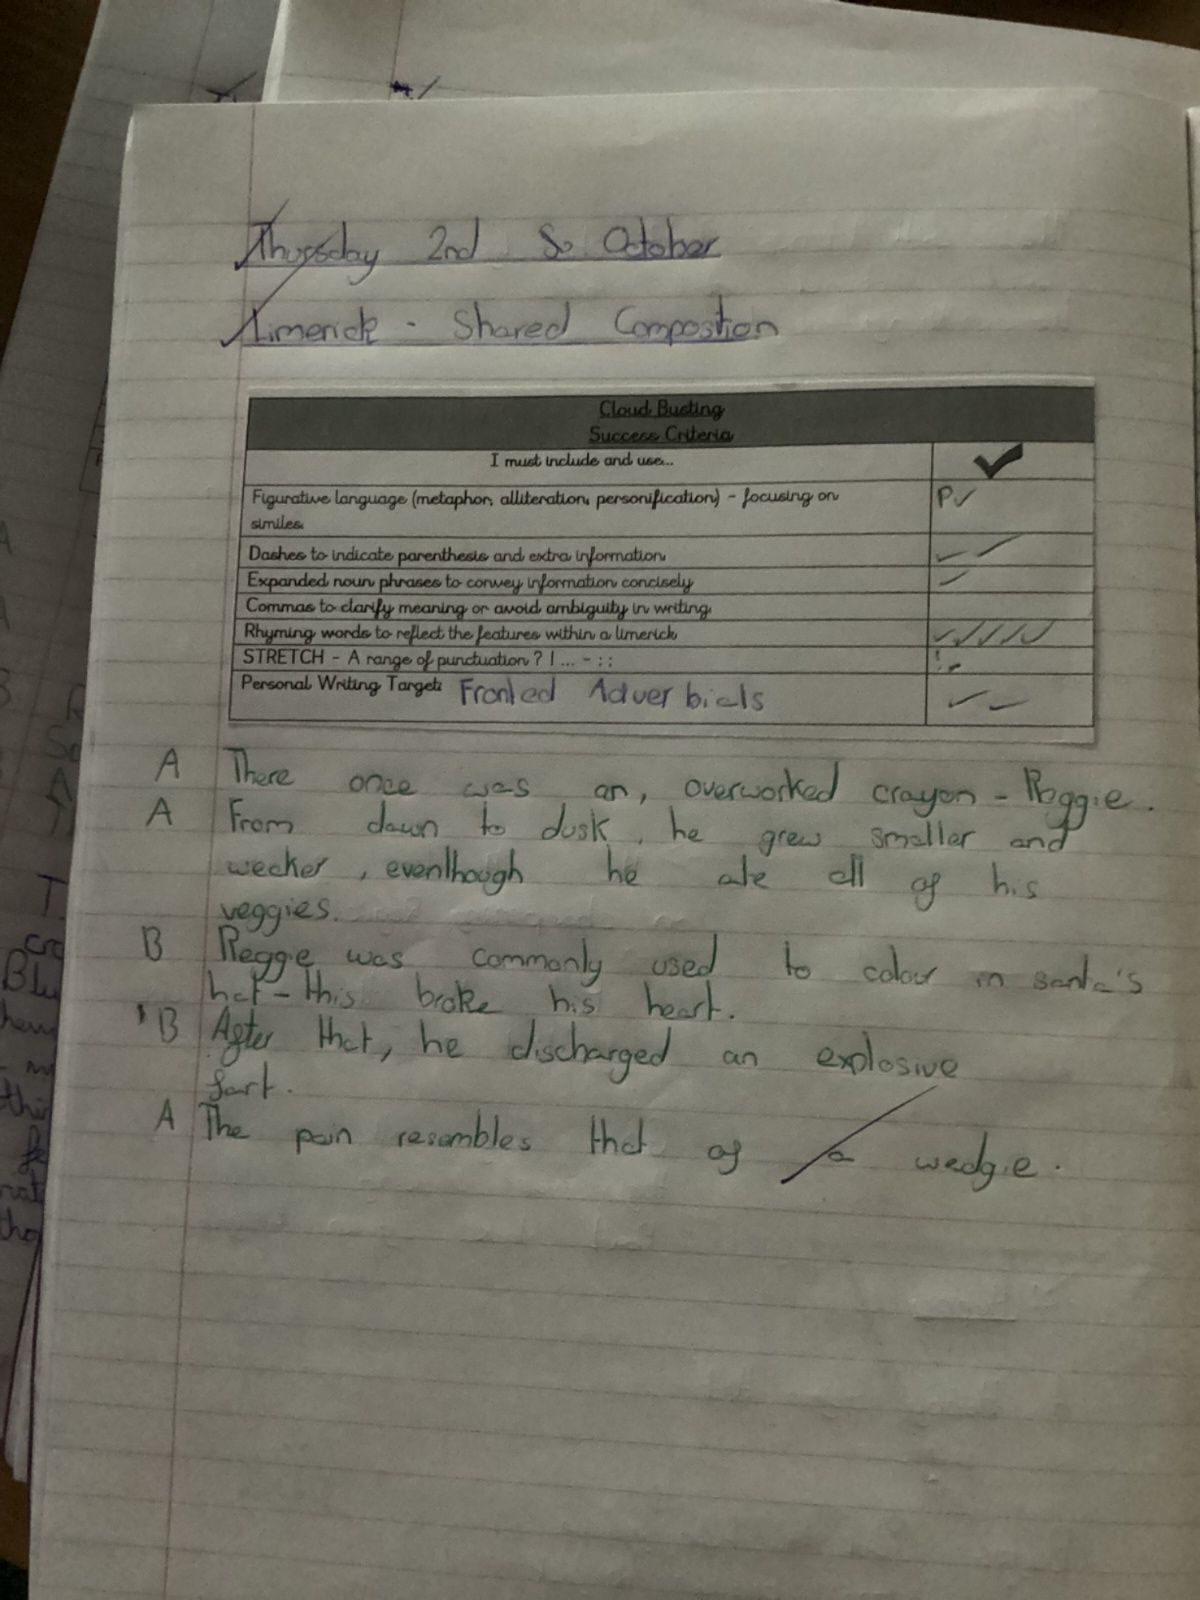 Thursday 2nd So October
Limerick - Shared Compostion
Cloud Busting
Success Criteria
I must include and use...
Figurative language (metaphor, alliteration, personification) - focusing on P✓
similes.
Dashes to indicate parenthesis and extra information
Expanded noun phrases to convey information concisely
Commas to clarify meaning or avoid ambiguity in writing.
Rhyming words to reflect the features within a limerick
STRETCH - A range of punctuation ? ! ... - : ;
Personal Writing Target: Fronted Adverbials
A There once was an, overworked crayon - Reggie.
A From dawn to dusk, he grew smaller and
wecker, eventhough he ate all of his
veggies.
B Reggie was commonly used to colour in santa's
hat - this broke his heart.
B After that, he discharged an explosive
fart.
A The pain resembles that of a wedgie.